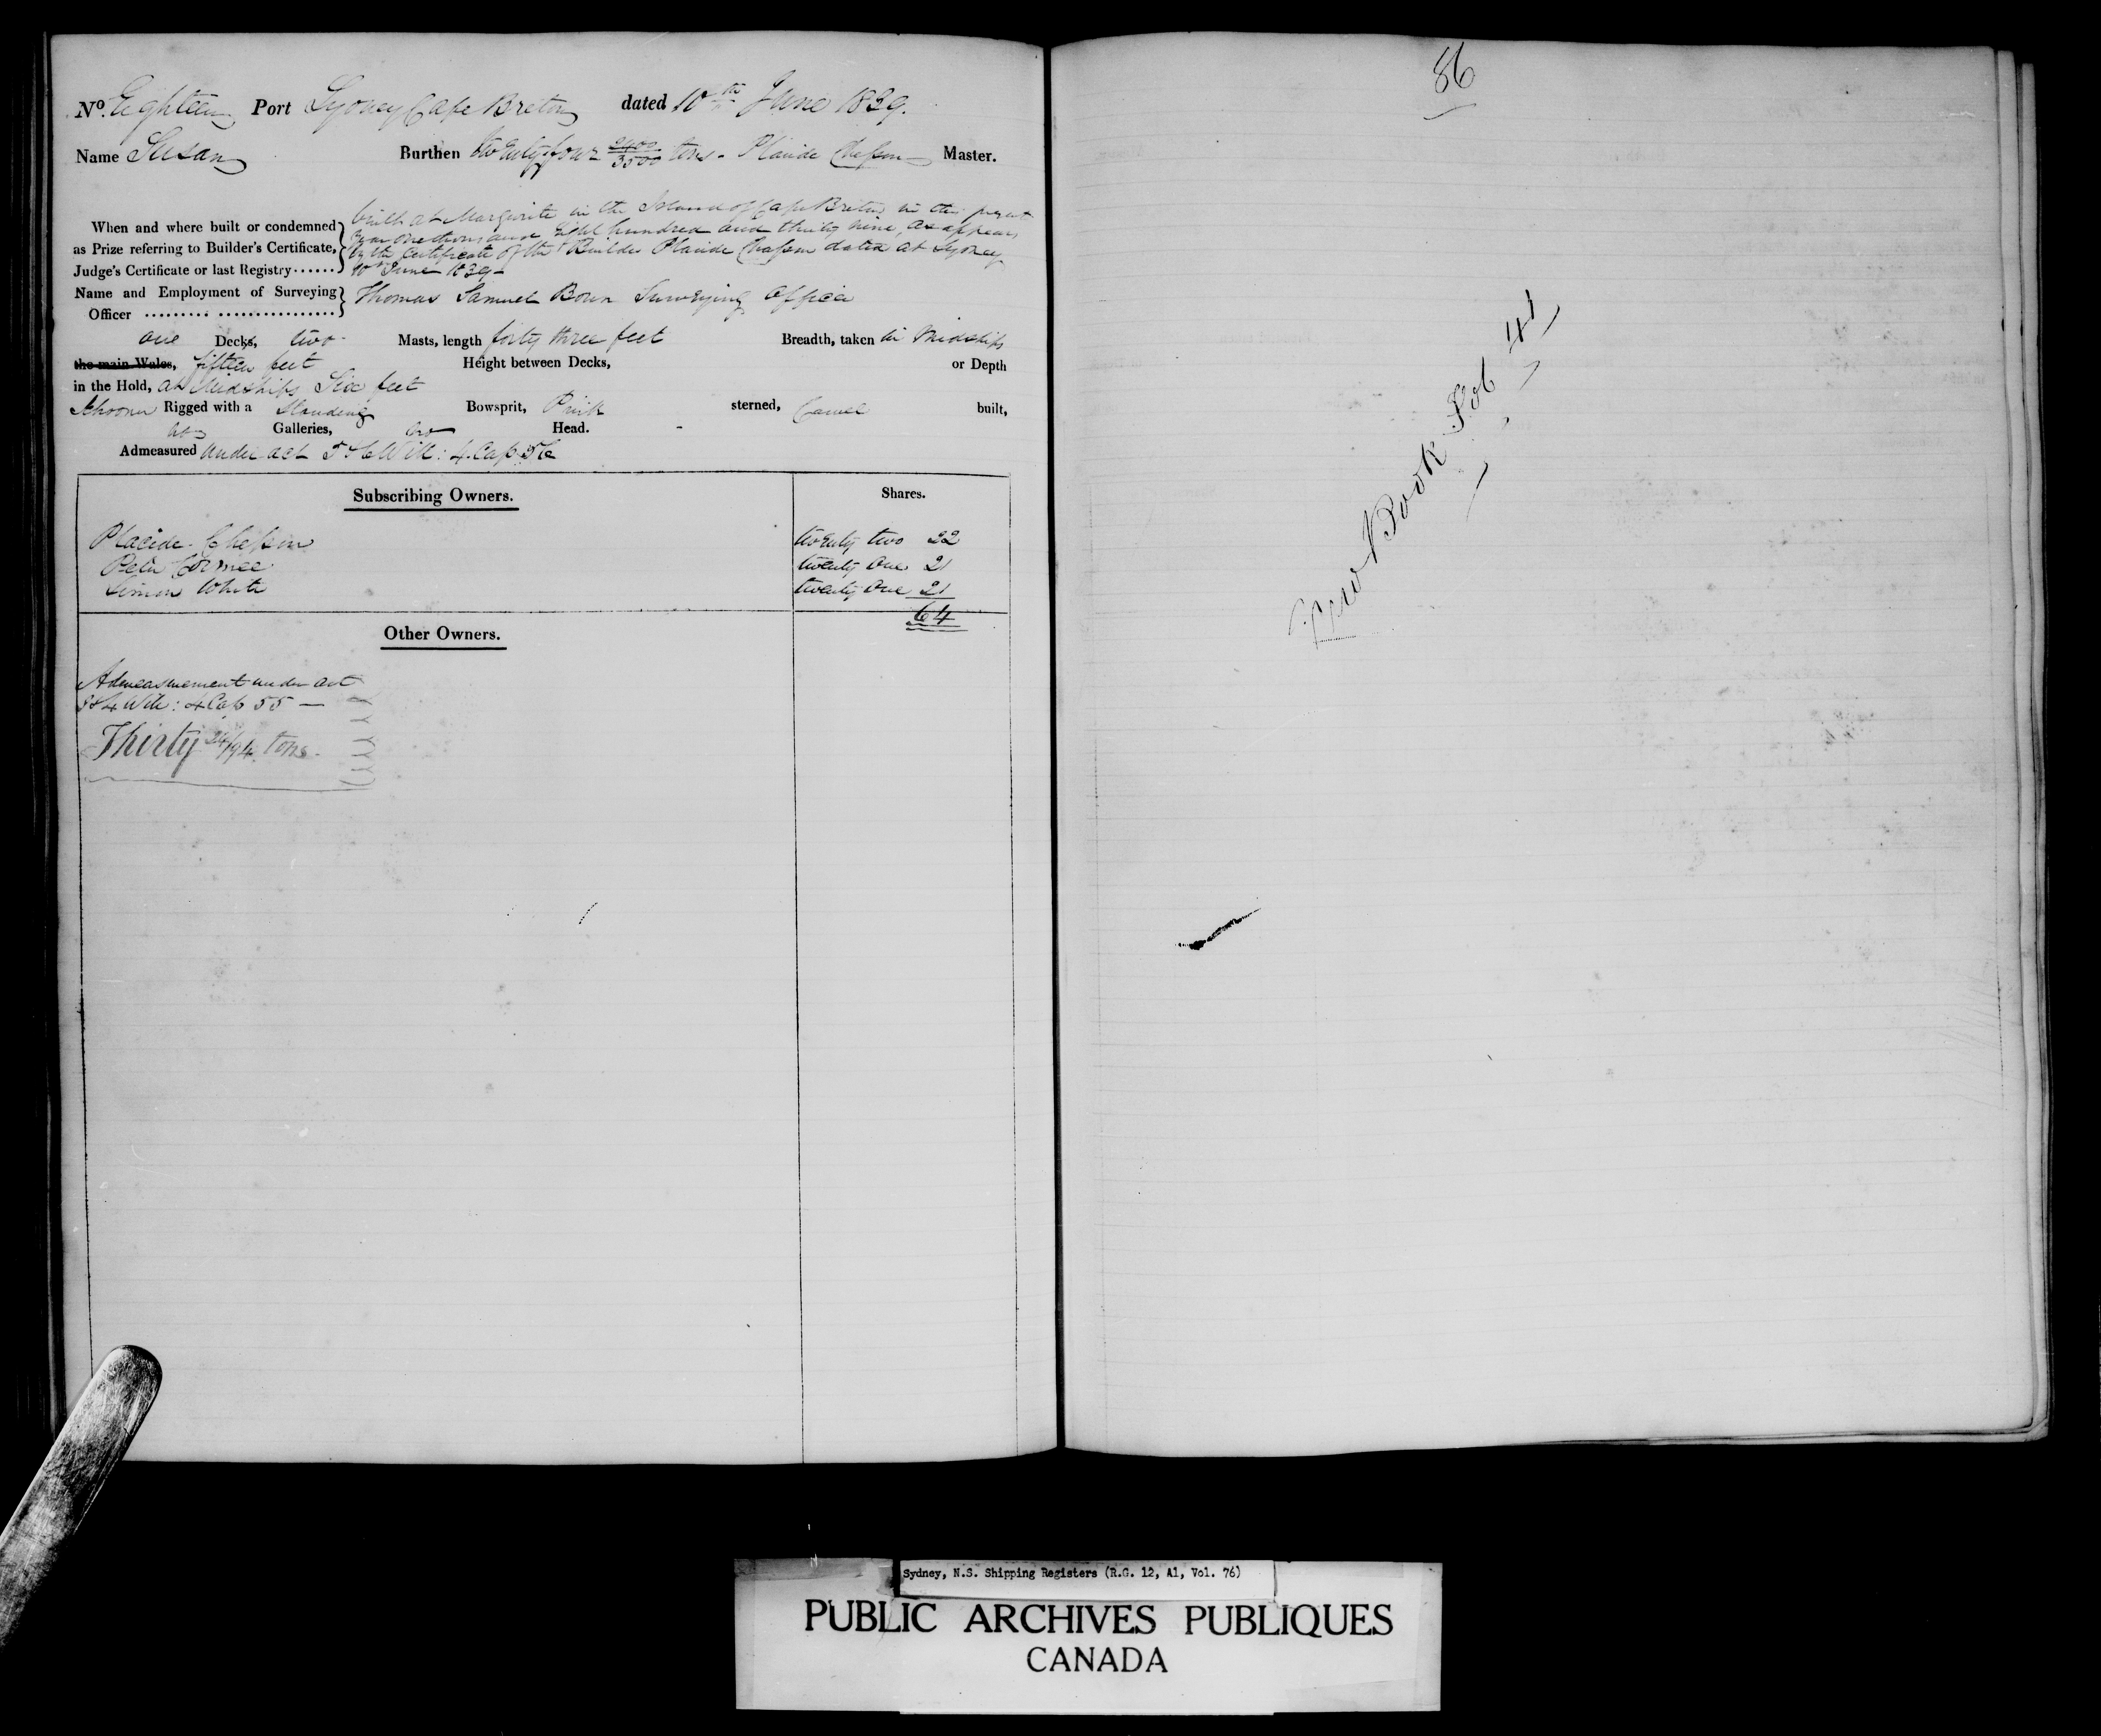 No. Eighteen Port Sydney Cape Breton dated 10th June 1839.
Name Susan Burthen twenty four 2400/3500 tons - Placide Chessin Master.
When and where built or condemned as Prize referring to Builder's Certificate, Judge's Certificate or last Registry......
built at Margurite in the Island of Cape Breton in the present
year one thousand Eight hundred and thirty nine, as appears
by the Certificate of the Builder Placide Chassin dated at Sydney
10th June 1839 -
Name and Employment of Surveying Officer ......... ................. Thomas Samuel Bown Surveying officer
one Decks, two Masts, length forty three feet Breadth, taken in Midships
the main Wales, fifteen feet Height between Decks, or Depth
in the Hold, at Midships Six feet
Schooner Rigged with a Standing Bowsprit, Pink sterned, Carvel built,
no Galleries, no Head.
Admeasured under act 5 & 6 Will: 4. Cap 56
Subscribing Owners. Shares.
Placide Chessin twenty two 22
Peter Cormee twenty one 21
Simon White twenty one 21
64
Other Owners.
Admeasurement under act
3 & 4 Will: 4 Cap 55 —
Thirty 24/94 tons -
86
New Book Fol 41
Sydney, N.S. Shipping Registers (R.G. 12, A1, Vol. 76)
PUBLIC ARCHIVES PUBLIQUES
CANADA